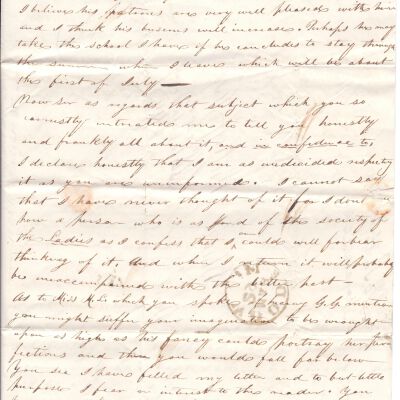 I believe his patrons are very well pleased with him
and I think his business will increase. Perhaps he may
take the school I have if he concludes to stay through
the summer when I leave which will be about
the first of July —
Now Sir as regards that subject which you so
earnestly intreated me to tell you honestly
and frankly all about it, and in confidence to,
I declare honestly that I am as undecided respecting
it as you are uninformed. I cannot say
that I have never thought of it for I dont
how a person who is as fond of the society of
the Ladies as I confess that I am could well forbear
thinking of it. And when I return it will probably
be unaccompanied with the better part
As to Miss which you spoke G.G. mention
you might suffer your imagination to be wrought
upon as high as his fancy could portray her per
fections and then you would fall far below
You see I have filled my letter and to but little
purpose I fear or interest to the reader. You